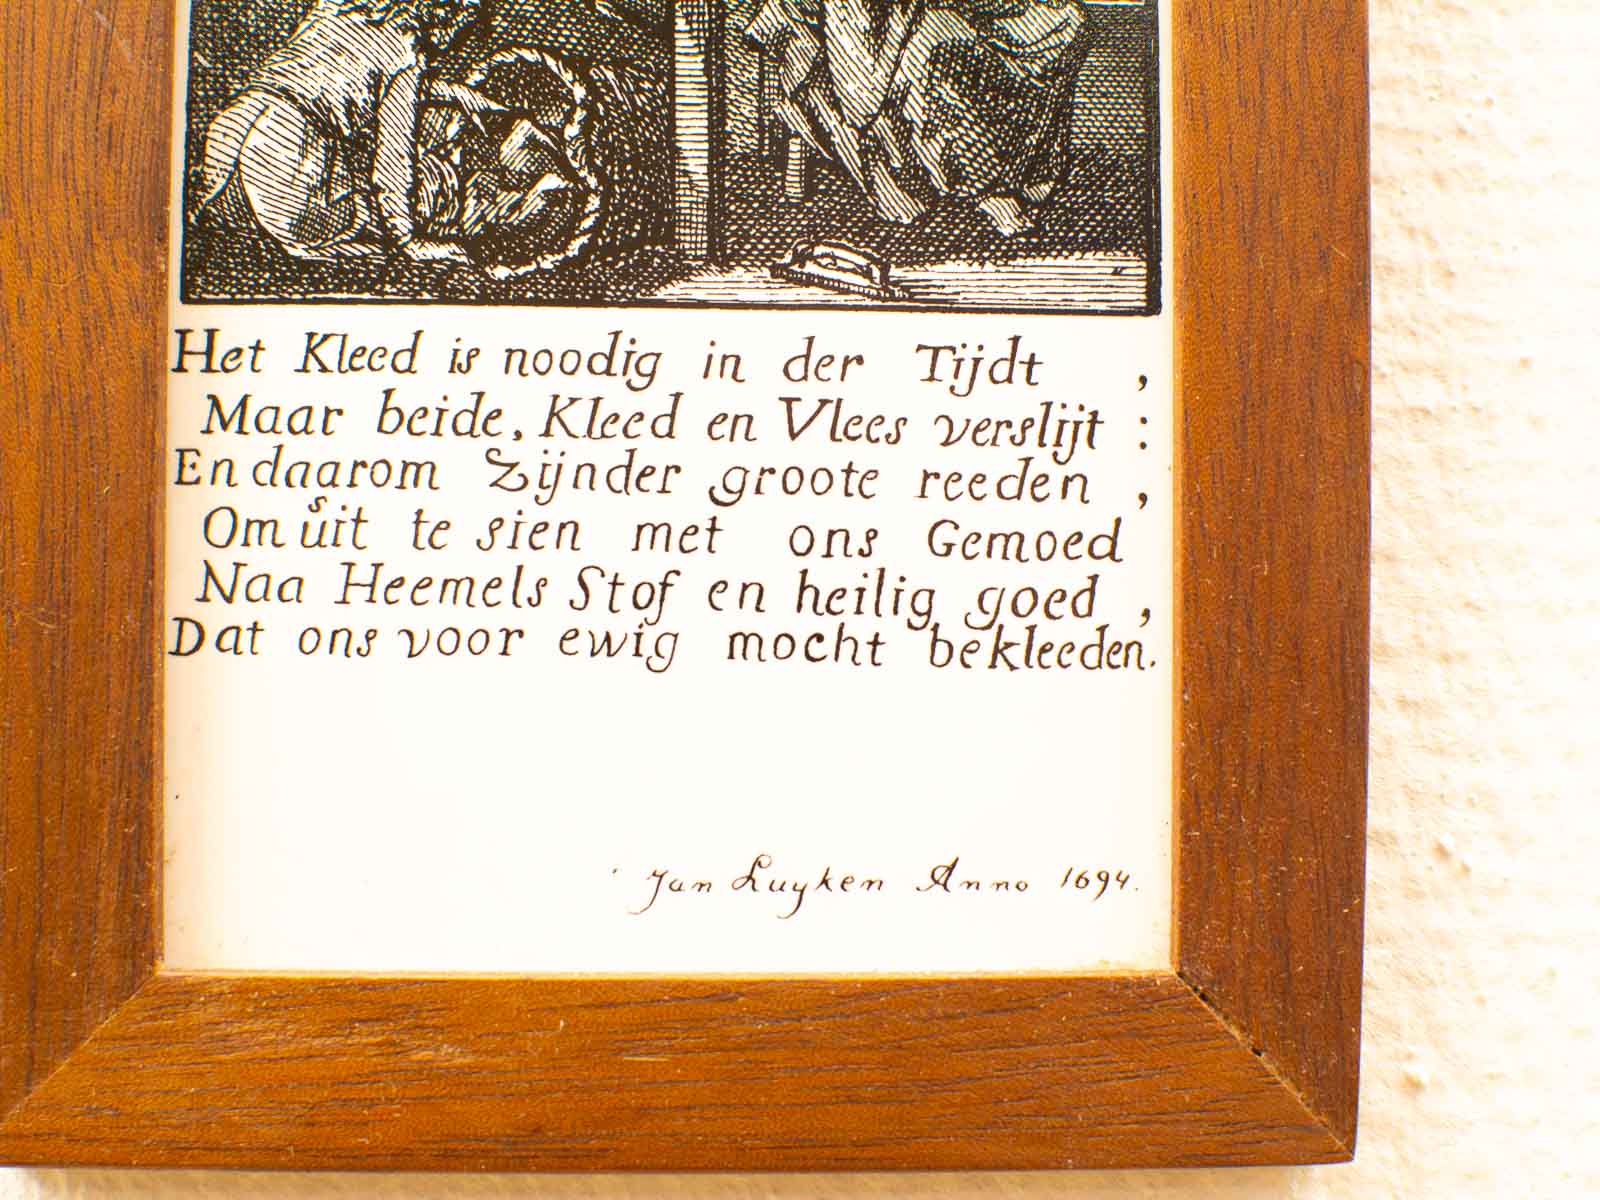 Het Kleed is noodig in der Tijdt ,
Maar beide, Kleed en Vlees verslijt :
En daarom Zijnder groote reeden ,
Om uit te sien met ons Gemoed
Naa Heemels Stof en heilig goed ,
Dat ons voor ewig mocht bekleeden.
Jan Luyken Anno 1694.